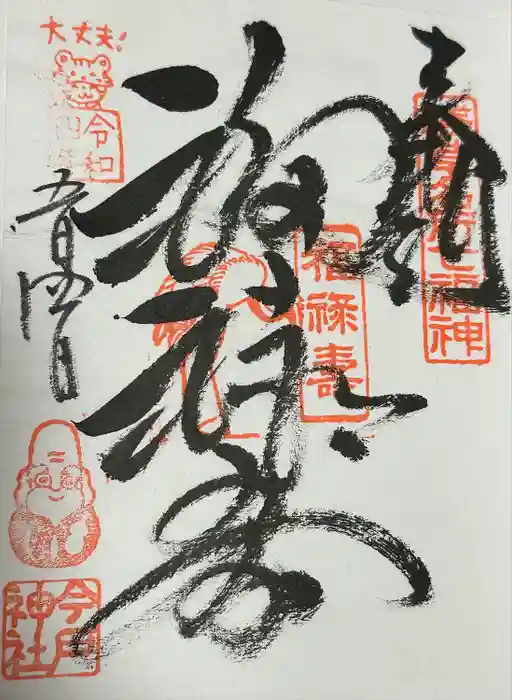 奉拝
福禄寿
福神
福禄寿
大丈夫!
令和
五月四日
今戸
神社